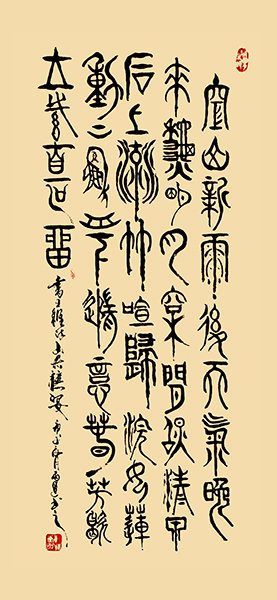 空山新雨後天氣晚
來秋明月松間照清泉
石上流竹喧歸浣女蓮
動下漁舟隨意春芳歇
王孫自可留
書王維